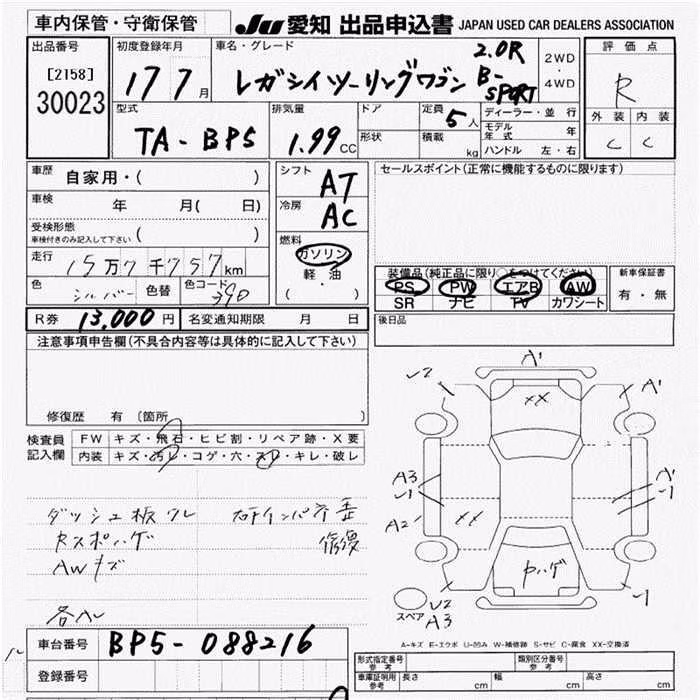 車内保管・守衛保管
JU 愛知 出品申込書 JAPAN USED CAR DEALERS ASSOCIATION
出品番号
[2158]
30023
初度登録年月
17 7月
車名・グレード
レガシィツーリングワゴン
2.0R
B-SPORT
2WD
・
4WD
評価点
R
外装 内装
C C
型式
TA-BP5
排気量
1.99 CC
ドア
形状
定員
5人
積載
kg
ディーラー・並行
モデル年式 年
ハンドル 左・右
車歴 自家用・( )
車検 年 月( 日)
受検形態
車検付きのみ記入して下さい ( )
走行 15万7千757km
色 シルバー 色替 色コード 390
シフト
AT
冷房
AC
燃料
ガソリン
軽・油
( )
セールスポイント(正常に機能するものに限ります)
装備品(純正品に限り○をつけてください)
PS PW エアB AW
SR ナビ TV カワシート
新車保証書
有・無
R券 13,000円 名変通知期限 月 日
後日品
注意事項申告欄(不具合内容等は具体的に記入して下さい)
修復歴 有 〔箇所
検査員
記入欄
FW キズ・飛石・ヒビ割・リペア跡・X要
内装 キズ・汚レ・コゲ・穴・スレ・キレ・破レ
ダッシュ板ウレ
修復
AWキズ
A'
XX
A3
A2
XX
スペア
U2
A3
A-キズ E-エクボ U-凹み W-補修跡 S-サビ C-腐食 XX-交換済
車台番号 BP5-088216
登録番号
形式指定番号
参考
類別区分番号
参考
車庫証明用
参考
長さ cm 幅 cm 高さ cm